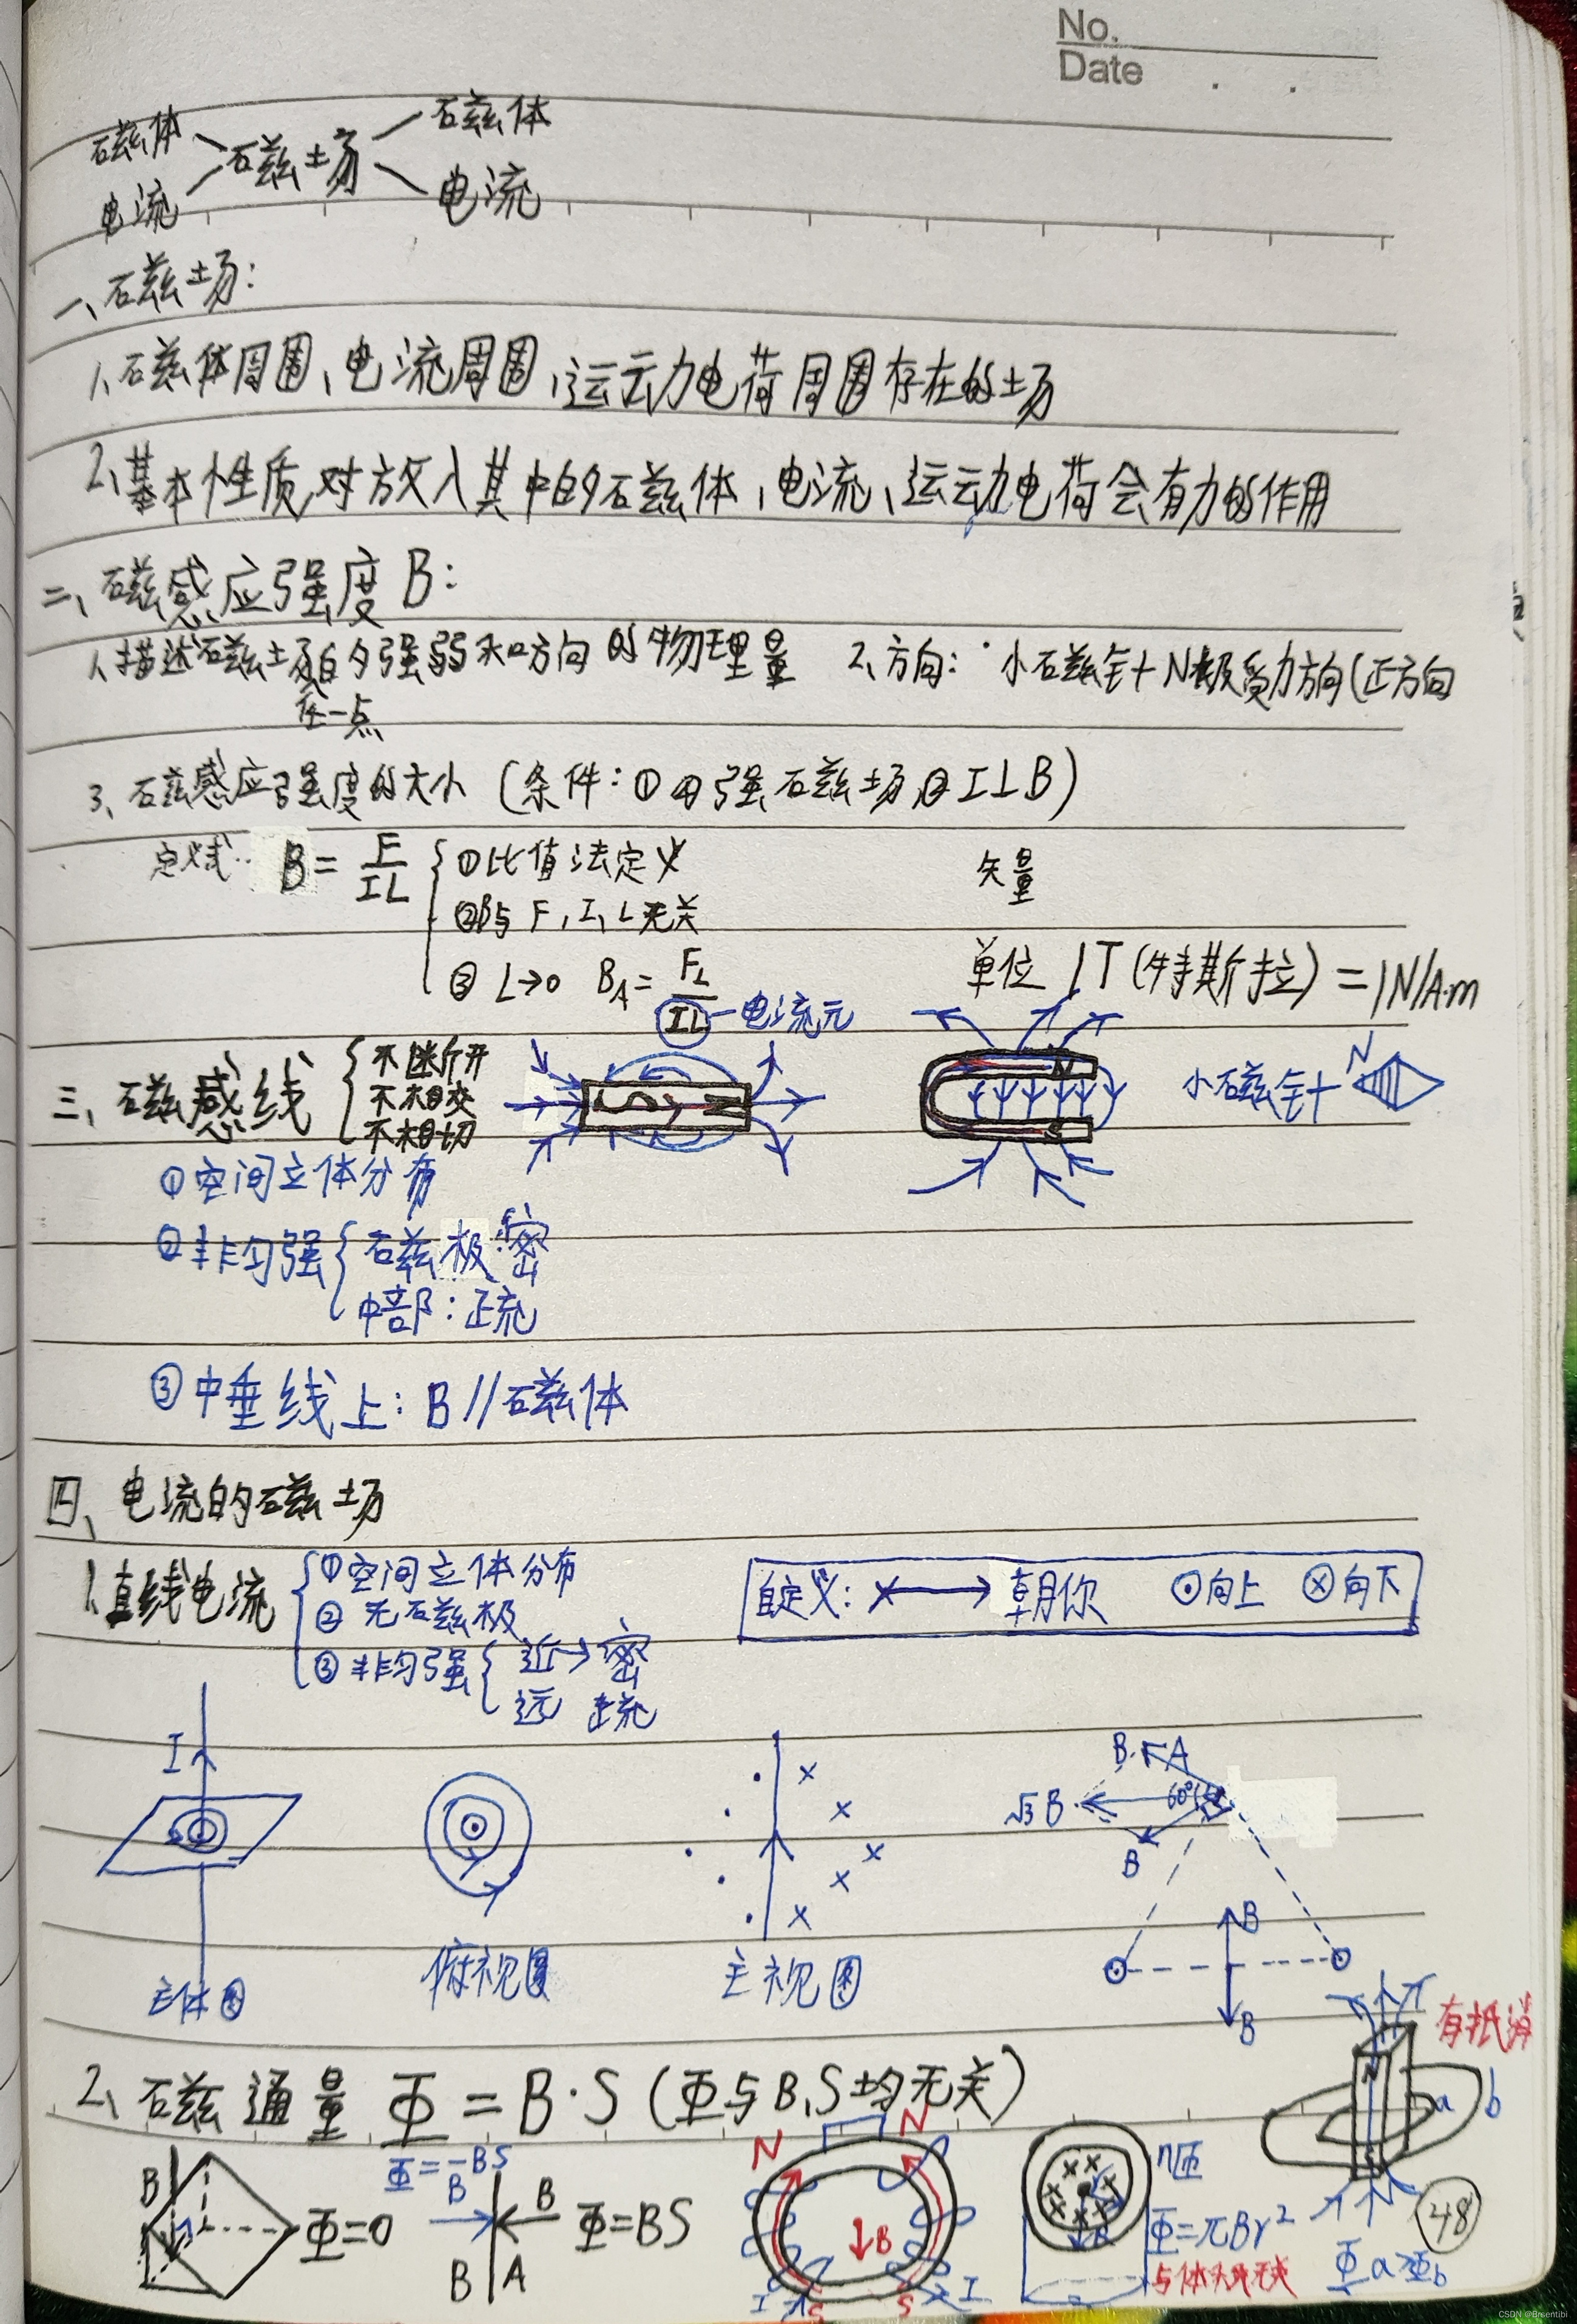 No.
Date
磁体 磁场 磁体
电流 电流
一、磁场:
1、磁体周围、电流周围、运动电荷周围存在的场
2、基本性质,对放入其中的磁体、电流、运动电荷会有力的作用
二、磁感应强度 B:
1、描述磁场的强弱和方向的物理量 2、方向: 小磁针 N极受力方向(正方向
在一点
3、磁感应强度的大小 (条件:① 匀强磁场 ② I⊥B)
定义式 B = F/IL ①比值法定义 矢量
②B与 F、I、L无关
③ L→0 B_A = F_L/IL 电流元 单位 1T(特斯拉) = 1N/A·m
三、磁感线 不断开 不相交 不相切
S N N S 小磁针 N
①空间立体分布
②非匀强 磁极:密
中部:疏
③中垂线上: B∥磁体
四、电流的磁场
1、直线电流 ①空间立体分布
②无磁极
③非匀强 近→密
远 疏
自定义: ×→ 朝你 ⊙向上 ⊗向下
I B A
√3B 60°
B
B
B
立体图 俯视图 主视图
有抵消
2、磁通量 Φ = B·S (Φ与B、S均无关)
a b
B Φ=0
Φ=-BS
B B Φ=BS
B A
N N
B
I S S I
n匝
Φ=πBr²
与体大或无关
Φa>Φb
48
CSDN @Brsentibi